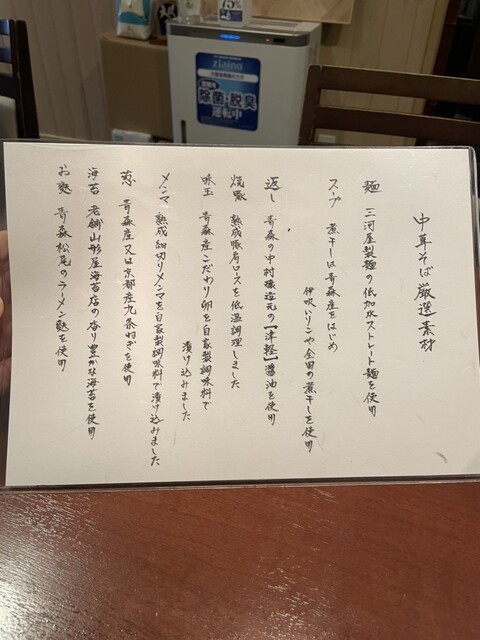 中華そば 厳選素材
麺 三河屋製麺の低加水ストレート麺を使用
スープ 煮干しは青森産をはじめ
伊吹いりこや全国の煮干しを使用
返し 青森の中村醸造元の【津軽】醤油を使用
焼豚 熟成豚肩ロースを低温調理しました
味玉 青森産こだわり卵を自家製調味料で
漬け込みました
メンマ 熟成細切りメンマを自家製調味料で漬け込みました
葱 青森産又は京都産九条ねぎを使用
海苔 老舗山形屋海苔店の香り豊かな海苔を使用
お麩 青森松尾のラーメン麩を使用
ziaino
除菌・脱臭
運転中
75%